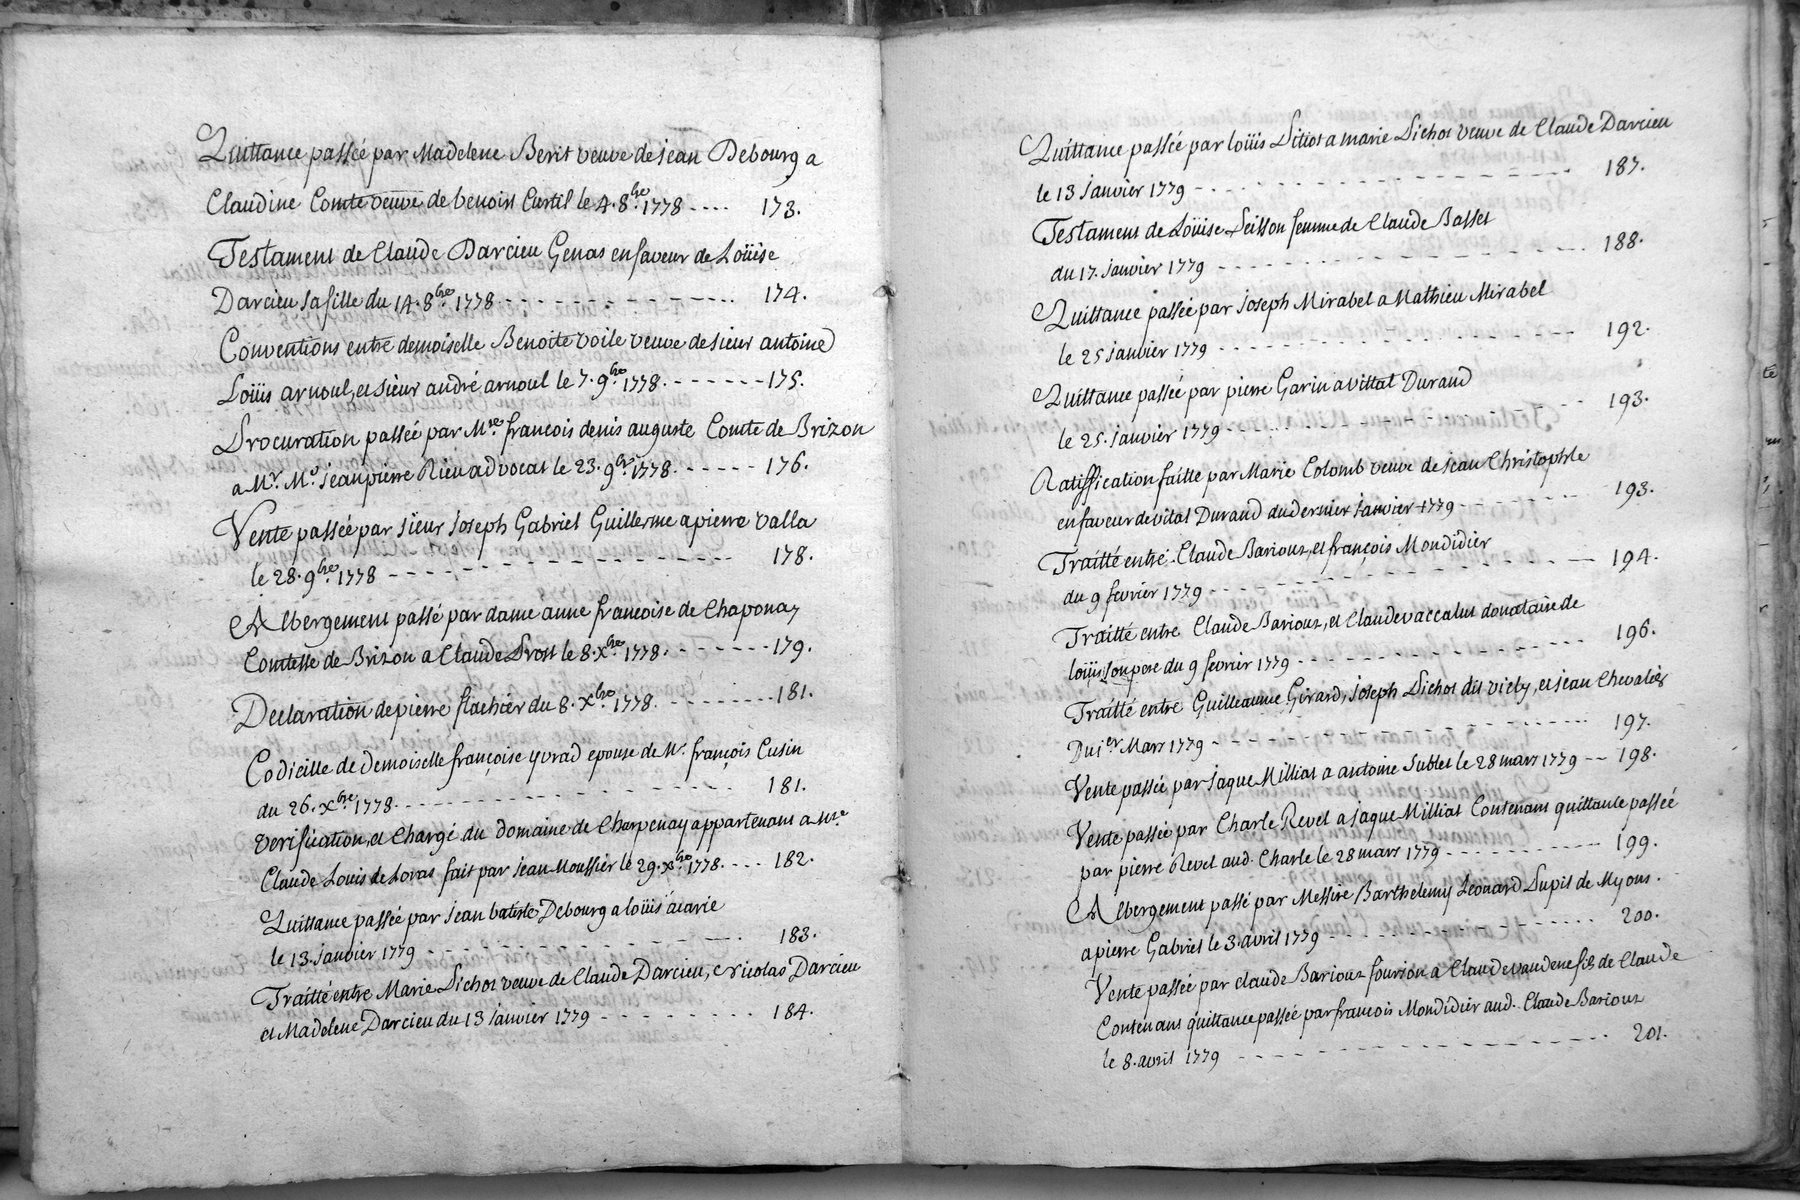 Quittance passée par Madelene Berit veuve de jean Debourg a
Claudine Comte veuve de benoist Curtil le 4. 8bre. 1778 .... 173.
Testament de Claude Darcieu Genas en faveur de Loüise
Darcieu sa fille du 14. 8bre. 1778 - - - - - - - - 174.
Conventions entre demoiselle Benoite voile veuve de sieur antoine
Loüis arnoul, et sieur andré arnoul le 7. 9bre. 1778. - - - - - - - 175.
Procuration passée par Mre. françois denis auguste Comte de Brizon
a Mr. Me. jean pierre Rieu advocat le 23. 9bre. 1778. - - - - - 176.
Vente passée par sieur joseph Gabriel Guillerme a pierre valla
le 28. 9bre. 1778 - - - - - - - - - - 178.
Albergement passé par dame anne francoise de Chaponay
Comtesse de Brizon a Claude Prost le 8. Xbre. 1778. - - - - - - - 179.
Declaration de pierre flachier du 8. Xbre. 1778. - - - - - - - - 181.
Codicille de demoiselle françoise yvrad epouse de Mr. françois Cusin
du 26. Xbre. 1778. - - - - - - - - - - 181.
verification, et Chargé du domaine de Charpenay appartenant a Mre.
Claude Louis de Loras fait par jean Moussier le 29. Xbre. 1778. .... 182.
Quittance passée par jean batiste Debourg a loüis acarie
le 13. janvier 1779 - - - - - - - - - - 183.
Traitté entre Marie Pichot veuve de Claude Darcieu, Nicolas Darcieu
et Madelene Darcieu du 13 janvier 1779 - - - - - - - - - 184.
Quittance passée par loüis Pitiot a marie Pichot veuve de Claude Darcieu
le 13 janvier 1779 - - - - - - - - - - 187.
Testament de Loüise Peisson femme de Claude Basset
du 17. janvier 1779 - - - - - - - - - - 188.
Quittance passée par joseph Mirabel a Mathieu Mirabel
le 25 janvier 1779 - - - - - - - - - - 192.
Quittance passée par pierre Garin a vittal Durand
le 25. janvier 1779 - - - - - - - - - - 193.
Ratiffication faitte par Marie Colomb veuve de jean Christophle
en faveur de vital Durand du dernier janvier 1779 - - - - - 193.
Traitté entre Claude Bariout, et françois Mondidier
du 9 février 1779 - - - - - - - - - - 194.
Traitté entre Claude Bariout, et Claude vaccalut donataire de
loüis son pere du 9 fevrier 1779 - - - - - - - - - - 196.
Traitté entre Guilleaume Girard, joseph Pichot dit vicly, et jean Chevalier
Du 1er Mars 1779 - - - - - - - - - - 197.
Vente passée par jaque Milliat a antoine Sublet le 28 mars 1779 - - 198.
Vente passée par Charle Revel a jaque Milliat Contenant quittance passée
par pierre Revel aud. Charle le 28 mars 1779 - - - - - - - - - 199.
Albergement passé par Messire Barthelemy Leonard Pupil de Myons.
a pierre Gabriel le 3. avril 1779 - - - - - - - - - - 200.
Vente passée par claude Bariout fourion a Claude vaudene fils de Claude
Contenant quittance passée par francois Mondidier aud. Claude Bariout
le 8. avril 1779 - - - - - - - - - - 201.